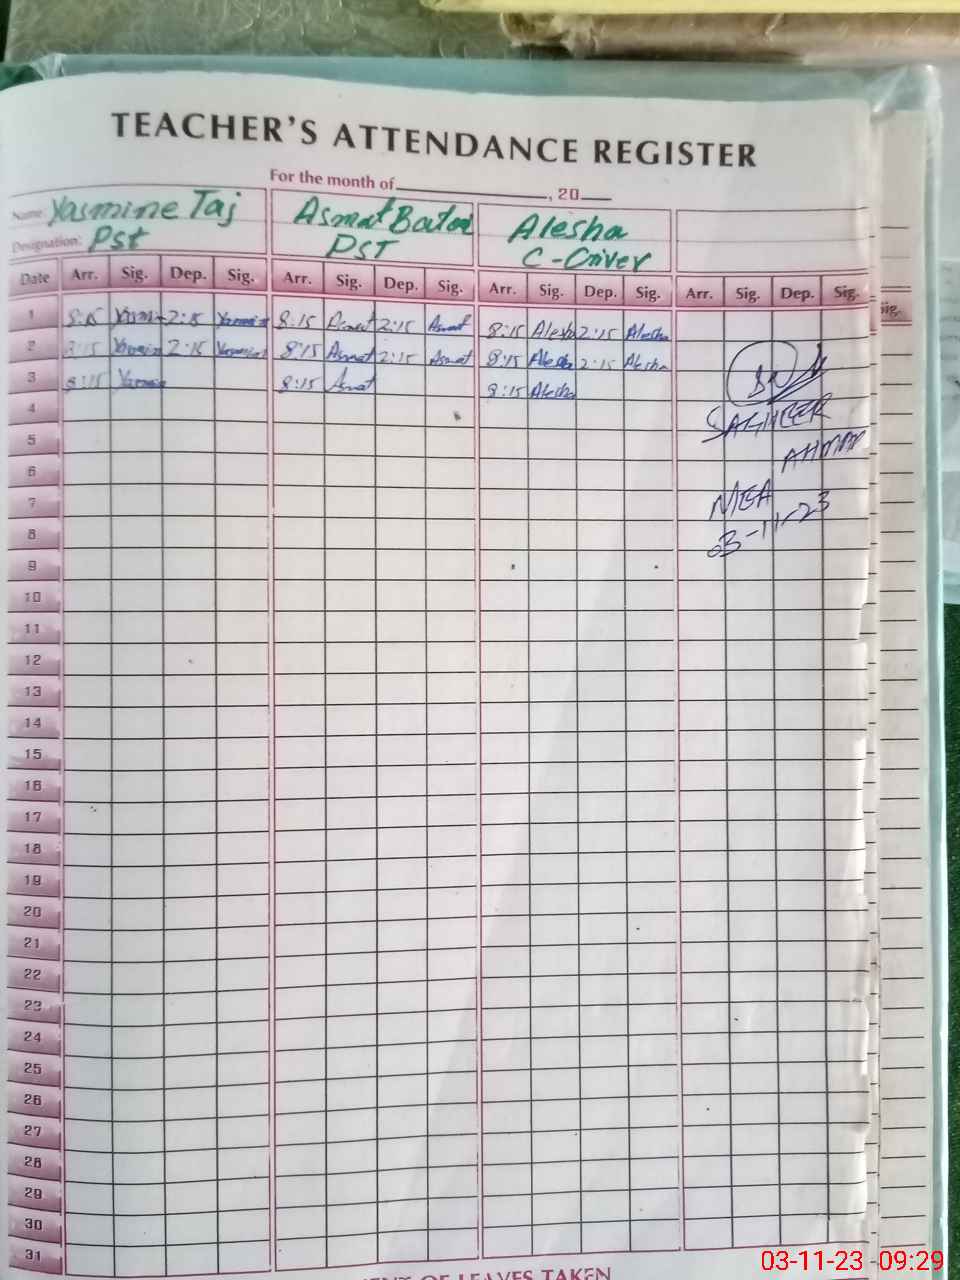 TEACHER'S ATTENDANCE REGISTER
For the month of , 20
Name: Yasmine Taj Asmat Alesha
Designation: Pst PST C-Criver
Date Arr. Sig. Dep. Sig. Arr. Sig. Dep. Sig. Arr. Sig. Dep. Sig. Arr. Sig. Dep. Sig.
Sig.
1 8:15 2:15 8:15 2:15 Asmat 8:15 Alesha 2:15 Alesha
2 8:15 2:15 8:15 Asmat 2:15 Asmat 8:15 Alesha 2:15 Alesha
3 8:15 8:15 Asmat 8:15 Alesha
4
SAGHEER
5
AHMAD
6
7
MEA
8
03-11-23
9
10
11
12
13
14
15
16
17
18
19
20
21
22
23
24
25
26
27
28
29
30
31
OF LEAVES TAKEN
03-11-23 09:29